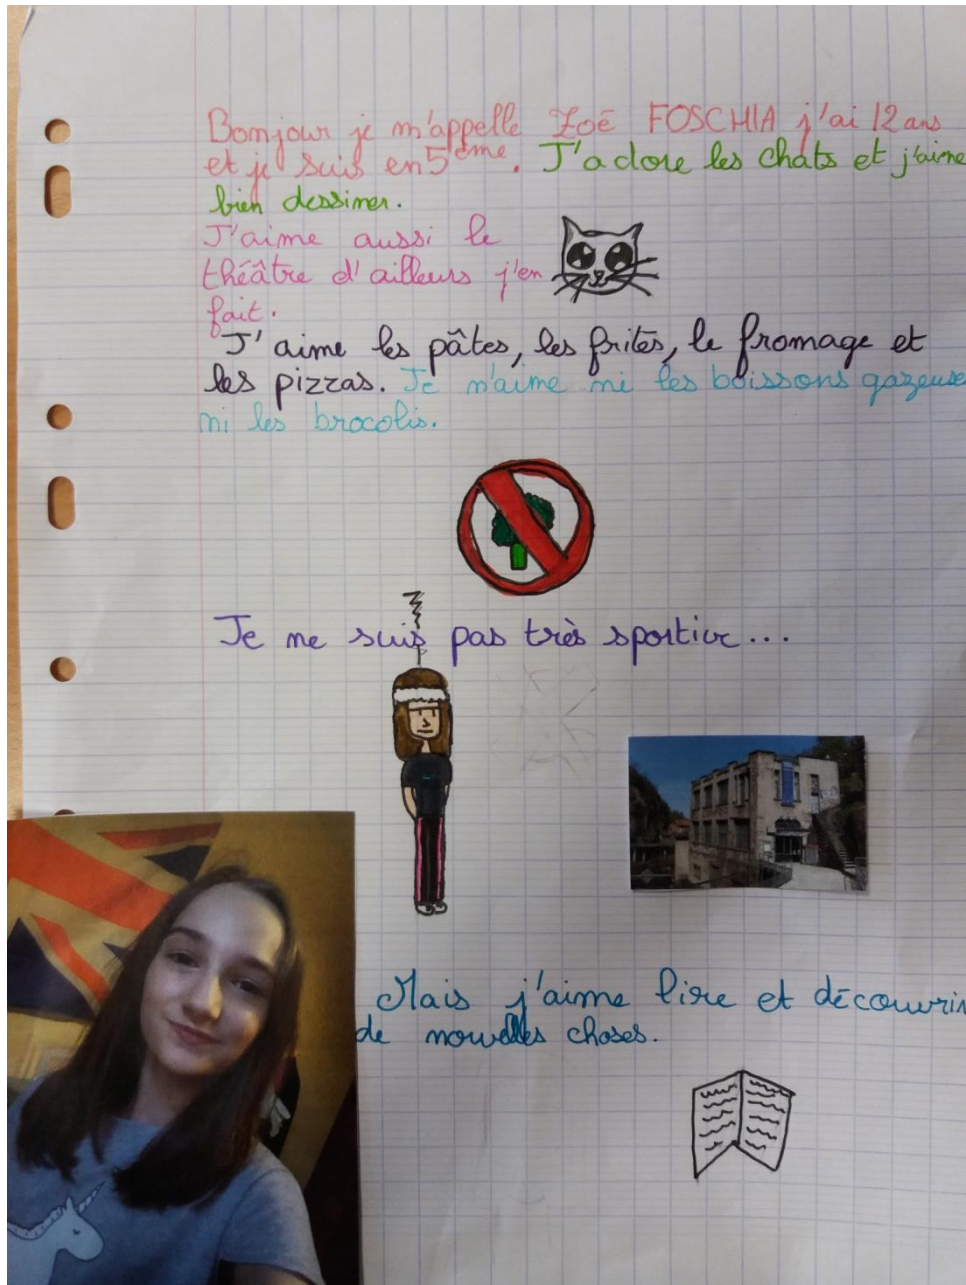 Bonjour je m'appelle Zoé FOSCHIA j'ai 12 ans
et je suis en 5ème. J'adore les chats et j'aime
bien dessiner.
J'aime aussi le
théâtre d'ailleurs j'en
fait.
J'aime les pâtes, les frites, le fromage et
les pizzas. Je n'aime ni les boissons gazeuse
ni les brocolis.
Je ne suis pas très sportive...
Mais j'aime lire et découvrir
de nouvelles choses.